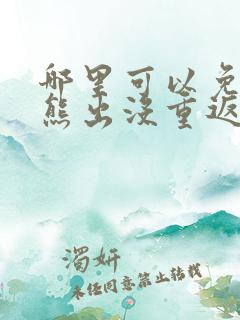 哪里可以免
熊出没重返
濁妍
未经同意禁止转载